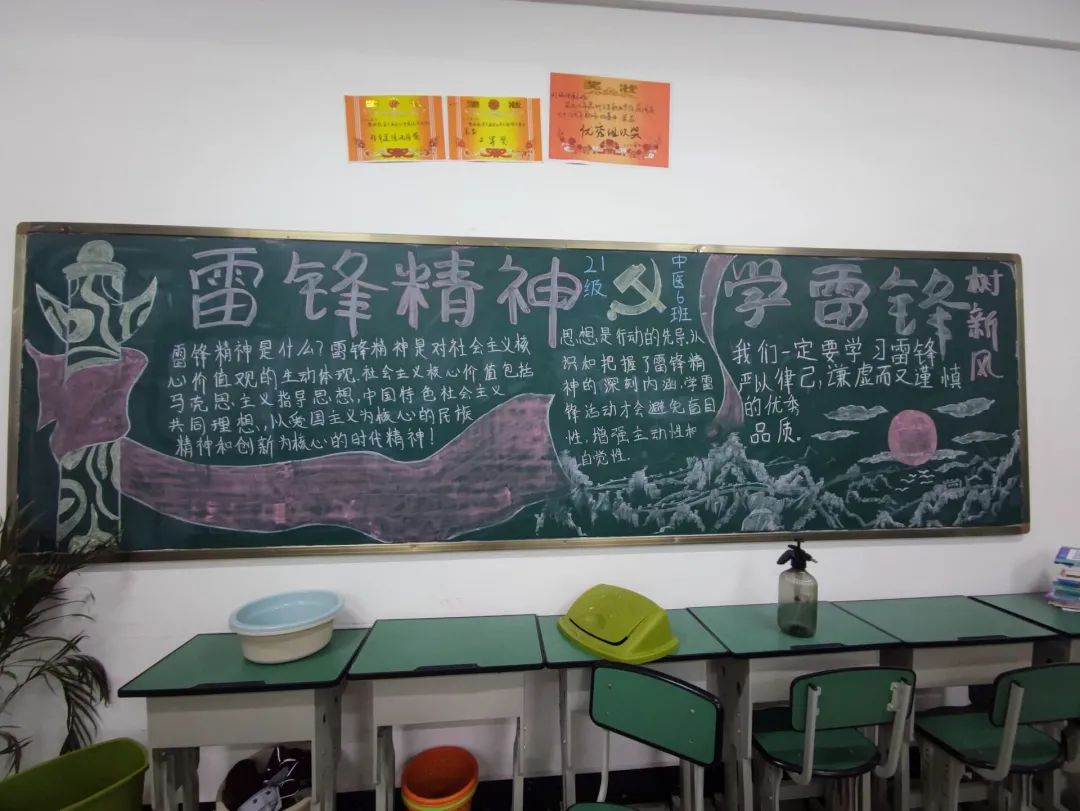 奖状
奖状
二等奖
奖状
优秀组织奖
雷锋精神
21级
中医6班
学雷锋
树新风
雷锋精神是什么?雷锋精神是对社会主义核
心价值观的生动体现.社会主义核心价值包括
马克思主义指导思想,中国特色社会主义
共同理想,以爱国主义为核心的民族
精神和创新为核心的时代精神!
思想,是行动的先导,认
识和把握了雷锋精
神的深刻内涵,学雷
锋活动才会避免盲目
性,增强主动性和
自觉性.
我们一定要学习雷锋
严以律己,谦虚而又谨慎
的优秀
品质.